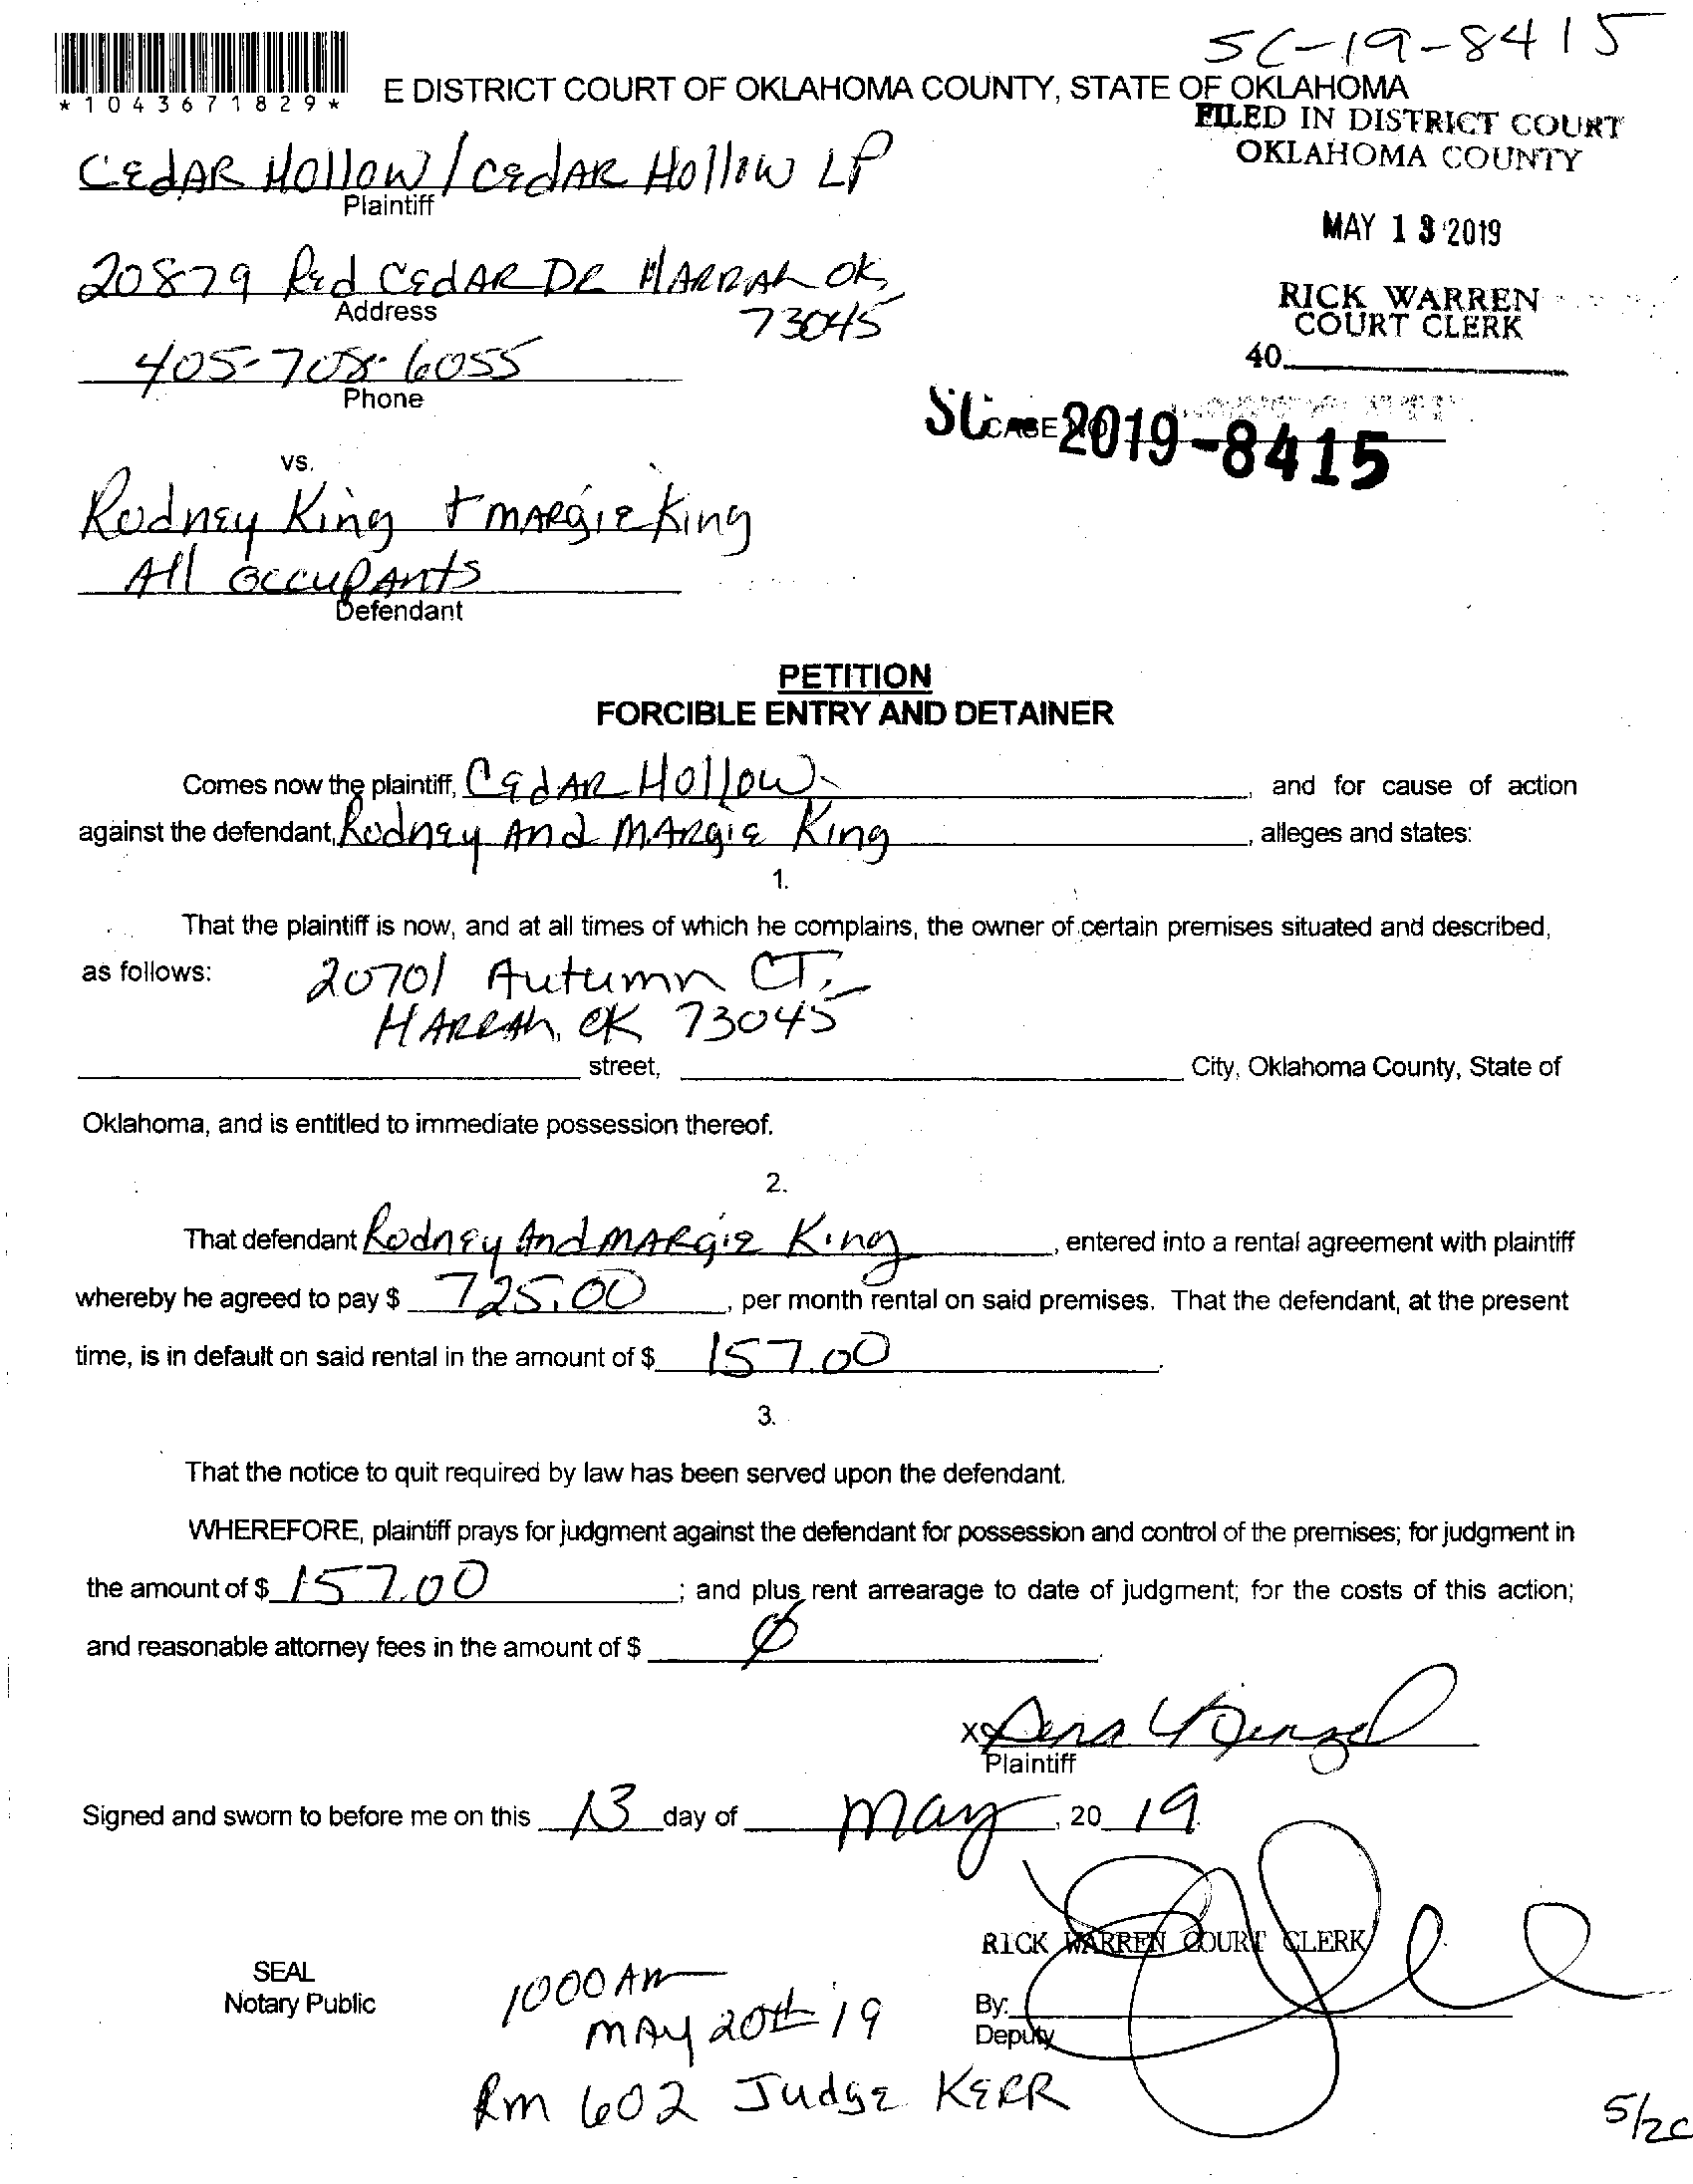 SC-19-8415
*1043671829*
E DISTRICT COURT OF OKLAHOMA COUNTY, STATE OF OKLAHOMA
FILED IN DISTRICT COURT
OKLAHOMA COUNTY
CEdAR Hollow / CEdAR Hollow LP
Plaintiff
MAY 13 2019
20879 Red CEdAR DR HARRAh OK
Address
73045
RICK WARREN
COURT CLERK
405-708-6055
Phone
40
CASE NO.
SC-2019-8415
vs.
Rodney King + MARgiE King
All occupAnts
Defendant
PETITION
FORCIBLE ENTRY AND DETAINER
Comes now the plaintiff, CEdAR Hollow, and for cause of action
against the defendant, Rodney And MARgiE King, alleges and states:
1.
That the plaintiff is now, and at all times of which he complains, the owner of certain premises situated and described,
as follows: 20701 Autumn CT.
HARRAh, OK 73045
street, City, Oklahoma County, State of
Oklahoma, and is entitled to immediate possession thereof.
2.
That defendant Rodney And MARgiE King, entered into a rental agreement with plaintiff
whereby he agreed to pay $ 725.00, per month rental on said premises. That the defendant, at the present
time, is in default on said rental in the amount of $ 157.00.
3.
That the notice to quit required by law has been served upon the defendant.
WHEREFORE, plaintiff prays for judgment against the defendant for possession and control of the premises; for judgment in
the amount of $ 157.00; and plus rent arrearage to date of judgment; for the costs of this action;
and reasonable attorney fees in the amount of $ Ø.
X
Plaintiff
Signed and sworn to before me on this 13 day of May, 20 19.
RICK WARREN COURT CLERK
SEAL
Notary Public
1000 AM
MAY 20th '19
By:
Deputy
Rm 602 JudgE KERR